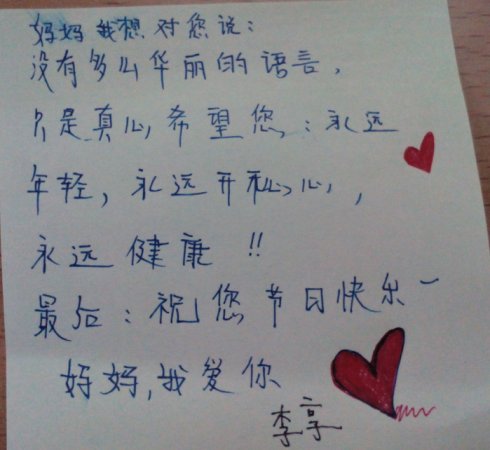 妈妈我想对您说：
没有多么华丽的语言，
只是真心希望您：永远
年轻，永远开心心，
永远健康!!
最后：祝您节日快乐一
妈妈，我爱你
李享